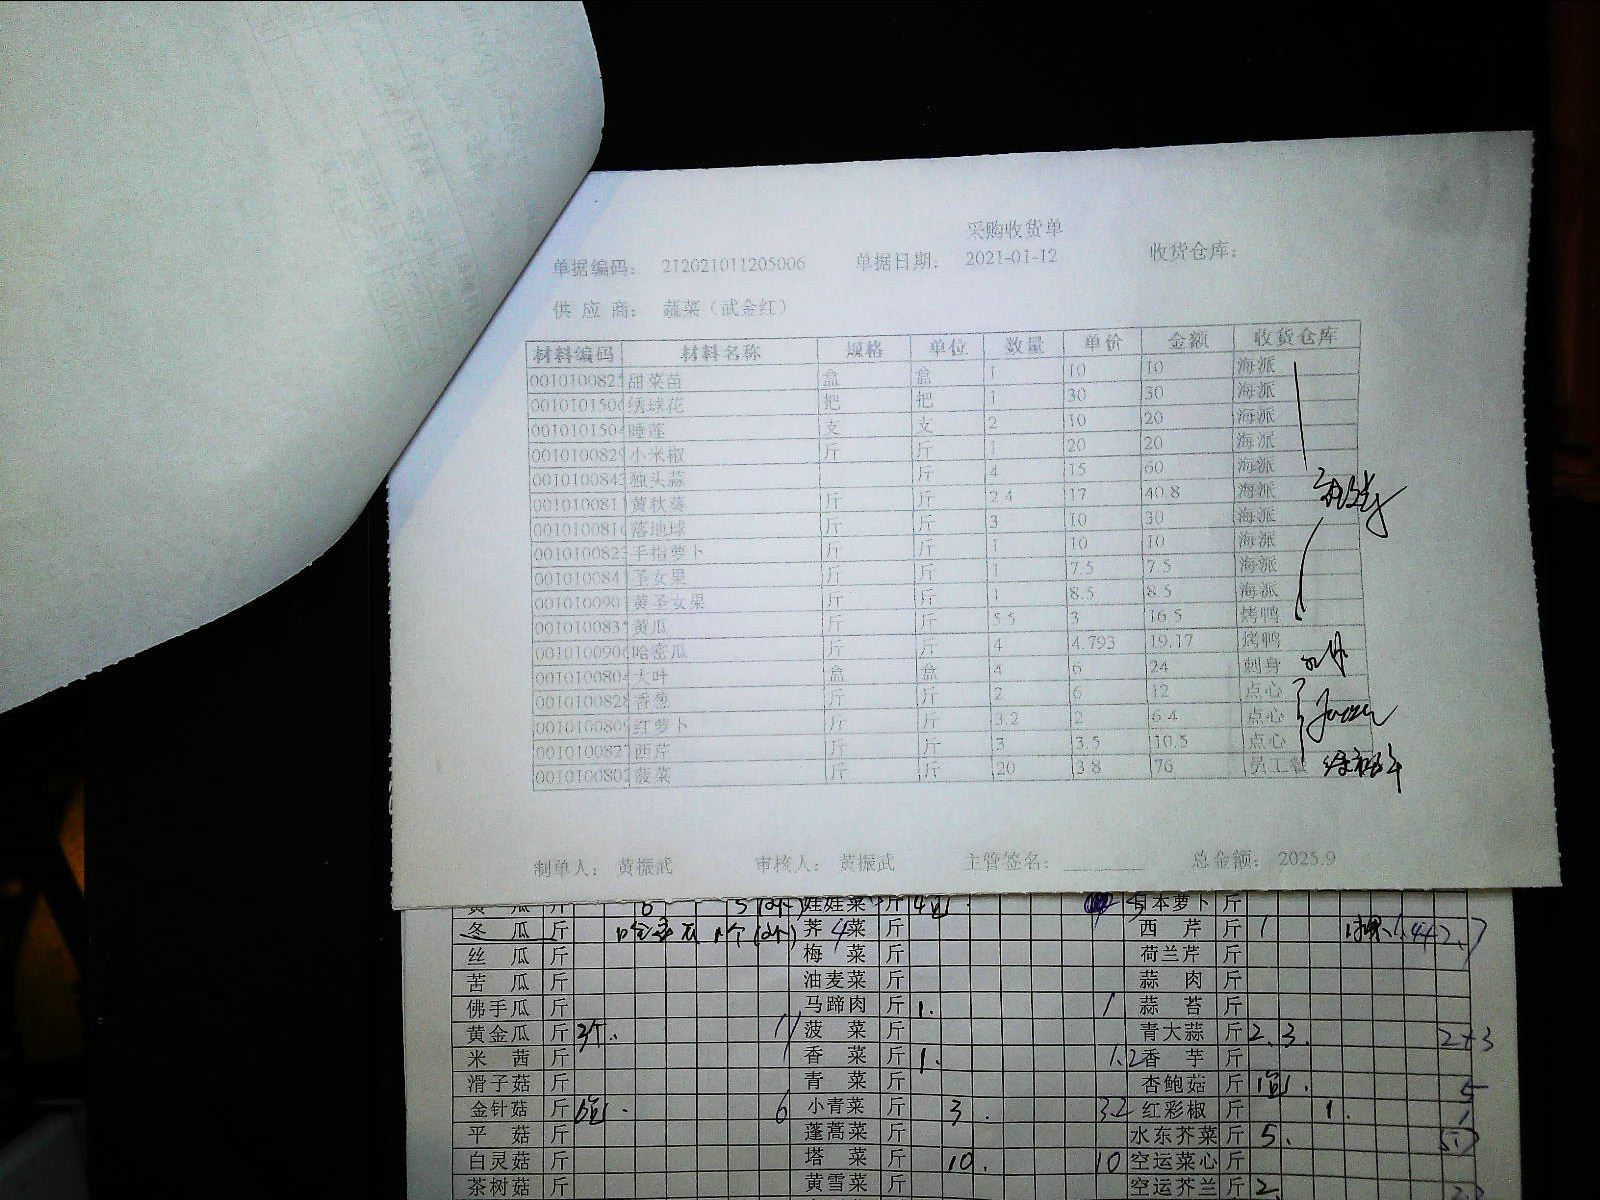 采购收货单
单据编码： 212021011205006 单据日期： 2021-01-12 收货仓库：
供 应 商： 蔬菜（武金红）
材料编码 材料名称 规格 单位 数量 单价 金额 收货仓库
001010082 甜菜苗 盒 盒 1 10 10 海派
001010150 绣球花 把 把 1 30 30 海派
001010150 睡莲 支 支 2 10 20 海派
001010082 小米椒 斤 斤 1 20 20 海派
001010084 独头蒜 斤 4 15 60 海派
001010081 黄秋葵 斤 斤 2.4 17 40.8 海派
001010081 落地球 斤 斤 3 10 30 海派
001010082 手指萝卜 斤 斤 1 10 10 海派
001010084 圣女果 斤 斤 1 7.5 7.5 海派
001010090 黄圣女果 斤 斤 1 8.5 8.5 海派
001010083 黄瓜 斤 斤 5.5 3 16.5 烤鸭
001010090 哈密瓜 斤 斤 4 4.793 19.17 烤鸭
001010080 大叶 盒 盒 4 6 24 刺身
001010082 香葱 斤 斤 2 6 12 点心
001010080 红萝卜 斤 斤 3.2 2 6.4 点心
001010082 西芹 斤 斤 3 3.5 10.5 点心
001010080 菠菜 斤 斤 20 3.8 76 员工餐
制单人： 黄振武 审核人： 黄振武 主管签名： 总金额： 2025.9
黄 瓜 斤 6 5 娃娃菜 斤 日本萝卜 斤
冬 瓜 斤 哈密瓜 荠 菜 斤 西 芹 斤 1
丝 瓜 斤 梅 菜 斤 荷兰芹 斤
苦 瓜 斤 油麦菜 斤 蒜 肉 斤
佛手瓜 斤 马蹄肉 斤 1. 1 蒜 苔 斤
黄金瓜 斤 菠 菜 斤 青大蒜 斤 2+3
米 茜 斤 香 菜 斤 1. 1.2 香 芋 斤
滑子菇 斤 青 菜 斤 杏鲍菇 斤 1包. 5
金针菇 斤 6包. 6 小青菜 斤 3. 3.2 红彩椒 斤 1. 1
平 菇 斤 蓬蒿菜 斤 水东芥菜 斤 5.
白灵菇 斤 塔 菜 斤 10. 10 空运菜心 斤
茶树菇 斤 黄雪菜 斤 空运芥兰 斤 2.